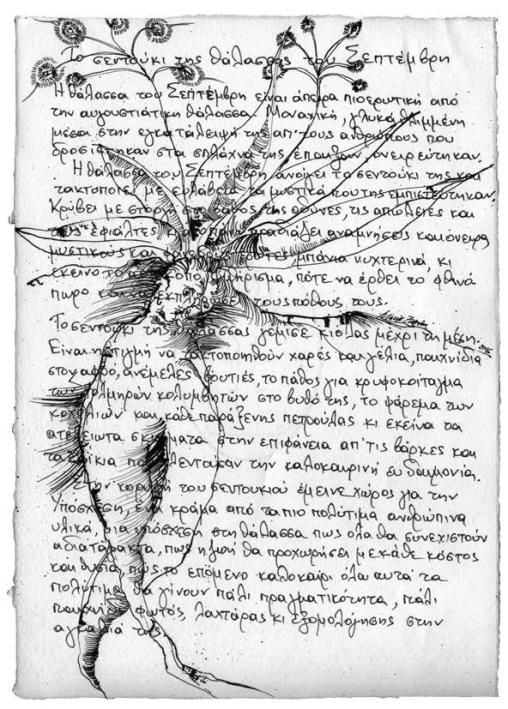 Το σεντούκι της θάλασσας του Σεπτέμβρη
Η θάλασσα του Σεπτέμβρη είναι άπειρα πιο ερωτική από
την αυγουστιάτικη θάλασσα. Μοναχική, γλυκά θλιμμένη
μέσα στην εγκατάλειψή της απ' τους ανθρώπους που
δροσίστηκαν στα σπλάχνα της, έπαιξαν, ονειρεύτηκαν.
Η θάλασσα του Σεπτέμβρη ανοίγει το σεντούκι της και
τακτοποιεί με ευλάβεια τα μυστικά που της εμπιστεύτηκαν.
Κρύβει με στοργή στο βάθος της οδύνες, τις απώλειες και
τους εφιάλτες αναμνήσεις και όνειρα
μυστικούς και έρωτες μπάνια νυχτερινά, κι
εκείνο το μουρμούρισμα, πότε να έρθει το φθινό
πωρο και να τους πόθους τους.
Το σεντούκι της θάλασσας γέμισε κιόλας μέχρι τη μέση.
Είναι η στιγμή να τακτοποιηθούν χαρές και γέλια, παιχνίδια
στον αφρό, ανέμελες βουτιές, το πάθος για κρυφοκοίταγμα
των τολμηρών κολυμβητών στο βυθό της, το φόρεμα των
κοχυλιών και κάθε παράξενης πετρούλας κι εκείνα τα
ατέλειωτα σκιρτήματα στην επιφάνεια απ' τις βάρκες και
τα καΐκια που την καλοκαιρινή ευδαιμονία.
Στην κορυφή του σεντουκιού έμεινε χώρος για την
Υπόσχεση, ένα κράμα από τα πιο πολύτιμα ανθρώπινα
υλικά, μια υπόσχεση στη θάλασσα πως όλα θα συνεχιστούν
αδιατάρακτα, πως η ζωή θα προχωρήσει με κάθε κόστος
και θυσία πως το επόμενο καλοκαίρι όλα αυτά τα
πολύτιμα θα γίνουν πάλι πραγματικότητα, πάλι
παιχνίδι φωτός, λαχτάρας κι εξομολόγησης στην
αγκαλιά της.